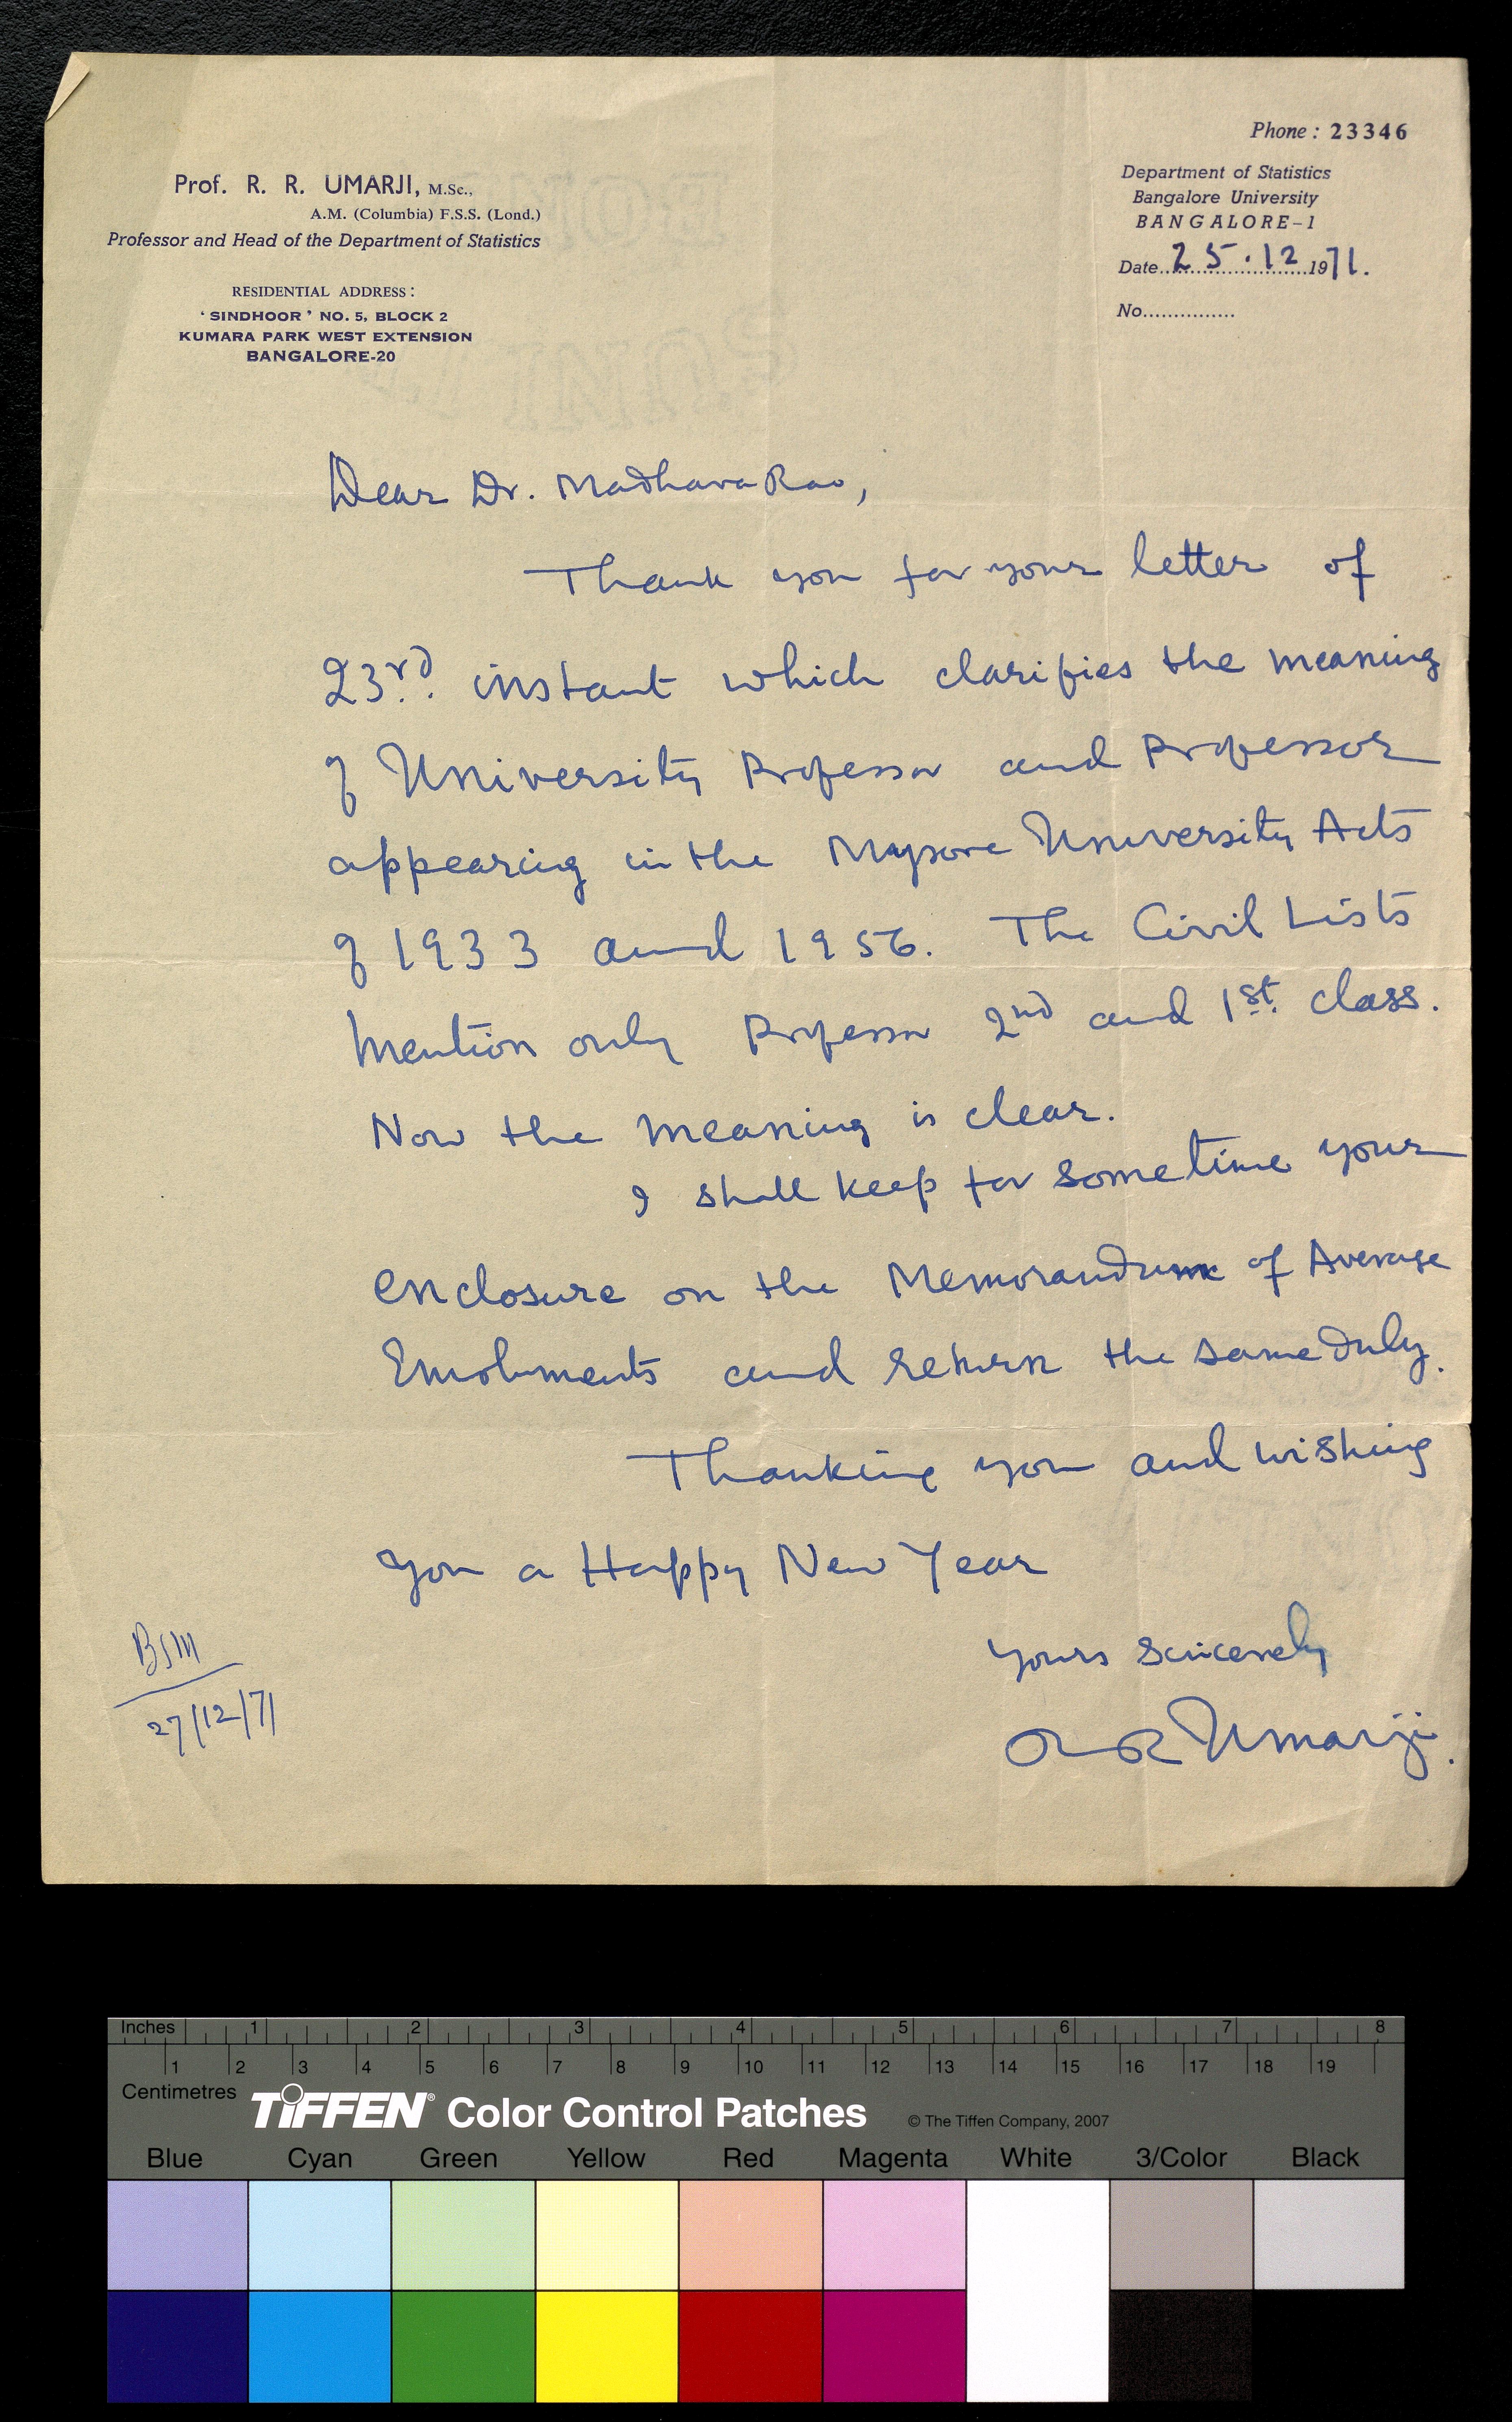 Phone : 23346
Prof. R. R. UMARJI, M.Sc.,
A.M. (Columbia) F.S.S. (Lond.)
Professor and Head of the Department of Statistics
RESIDENTIAL ADDRESS :
‘ SINDHOOR ’ NO. 5, BLOCK 2
KUMARA PARK WEST EXTENSION
BANGALORE-20
Department of Statistics
Bangalore University
BANGALORE-1
Date..25.12...1971.
No...............
Dear Dr. Madhava Rao,
Thank you for your letter of
23rd. instant which clarifies the meaning
of University Professor and Professor
appearing in the Mysore University Acts
of 1933 and 1956. The Civil Lists
mention only Professor 2nd and 1st. class.
Now the meaning is clear.
I shall keep for sometime your
enclosure on the Memorandum of Average
Emoluments and return the same duly.
Thanking you and wishing
you a Happy New Year
Yours sincerely
R R Umarji.
BSM
27/12/71
Inches 1 2 3 4 5 6 7 8
1 2 3 4 5 6 7 8 9 10 11 12 13 14 15 16 17 18 19
Centimetres
TIFFEN® Color Control Patches © The Tiffen Company, 2007
Blue Cyan Green Yellow Red Magenta White 3/Color Black